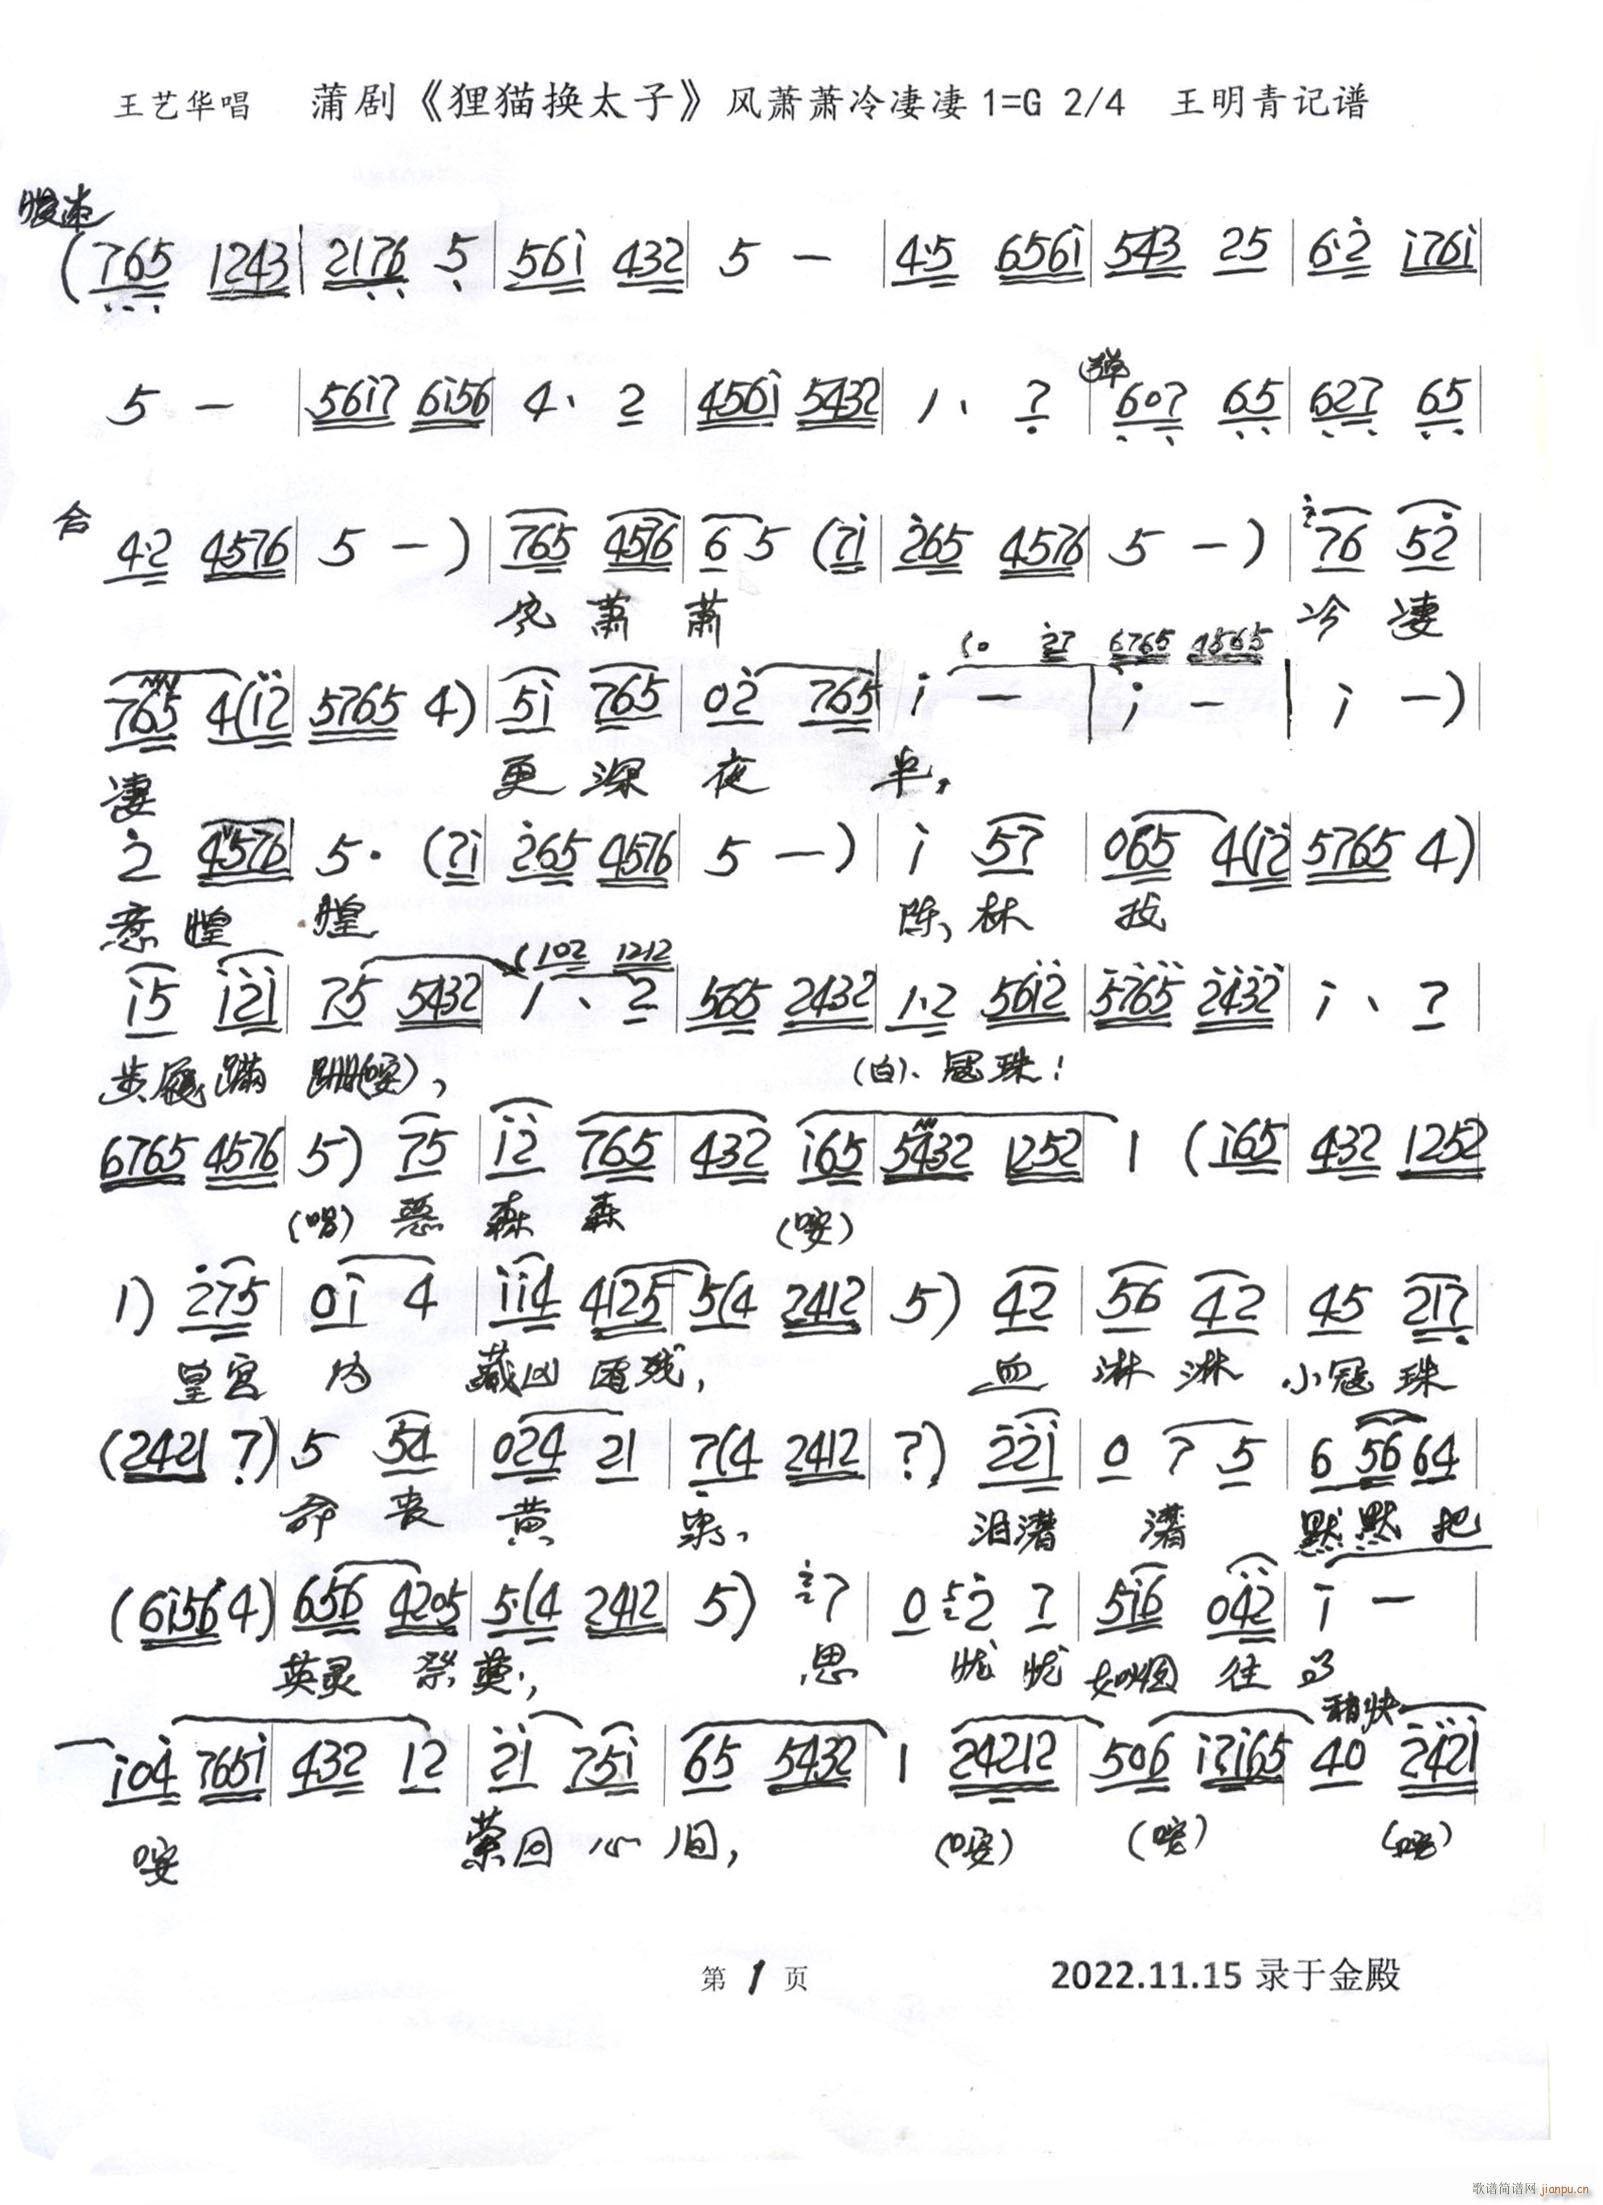 王艺华唱 蒲剧《狸猫换太子》风萧萧冷凄凄 1=G 2/4 王明青记谱
慢速
(765 1243 | 2176 5 | 56i 432 | 5 — | 4·5 656i | 543 25 | 6·2 i76i |
弹
5 — | 56i7 6i56 | 4· 2 | 456i 5432 | 1· 7 | 607 65 | 627 65 |
合 4·2 4576 | 5 — ) | 765 4576 | 6 5 (7i | 265 4576 | 5 — ) | 76 52 |
风 萧 萧 冷 凄
(0 27 6765 4565
765 4(i2 | 5765 4) | 5i 765 | 02 765 | i — | i — | i — ) |
凄 更 深 夜 半,
2 4576 | 5· (7i | 265 4576 | 5 — ) | i 57 | 065 4(i2 | 5765 4) |
意 惶 惶 陈 林 我
(102 1212
i5 i2i | 75 5432 | 1· 2 | 565 2432 | 1·2 56i2 | 5765 2432 | i· 7 |
步履蹒 跚(唉), (白)、寇珠!
6765 4576 | 5) 75 | i2 765 | 432 i65 | 5432 1252 | 1 (i65 | 432 1252 |
(唱) 恶 森 森 (唉)
1) 275 | 0i 4 | ii4 4125 | 5(4 2412 | 5) 42 | 56 42 | 45 217 |
皇宫 内 藏凶 残, 血 淋 淋 小寇 珠
(2421 7) | 5 54 | 024 21 | 7(4 2412 | 7) 22i | 0 7 5 | 6 56 64 |
命 丧 黄 泉、 泪潸 潸 默默 把
(6i56 4) | 656 4205 | 5·(4 2412 | 5) 7 | 0 2 7 | 5i6 042 | i — |
英灵 祭奠, 思 忧 忧 如烟 往
稍快
i04 765i | 432 12 | 2i 75i | 65 5432 | 1 24212 | 506 i2i65 | 40 242i |
唉 萦回 心 间, (唉) (唉) (唉)
第 1 页 2022.11.15 录于金殿
歌谱简谱网 jianpu.cn